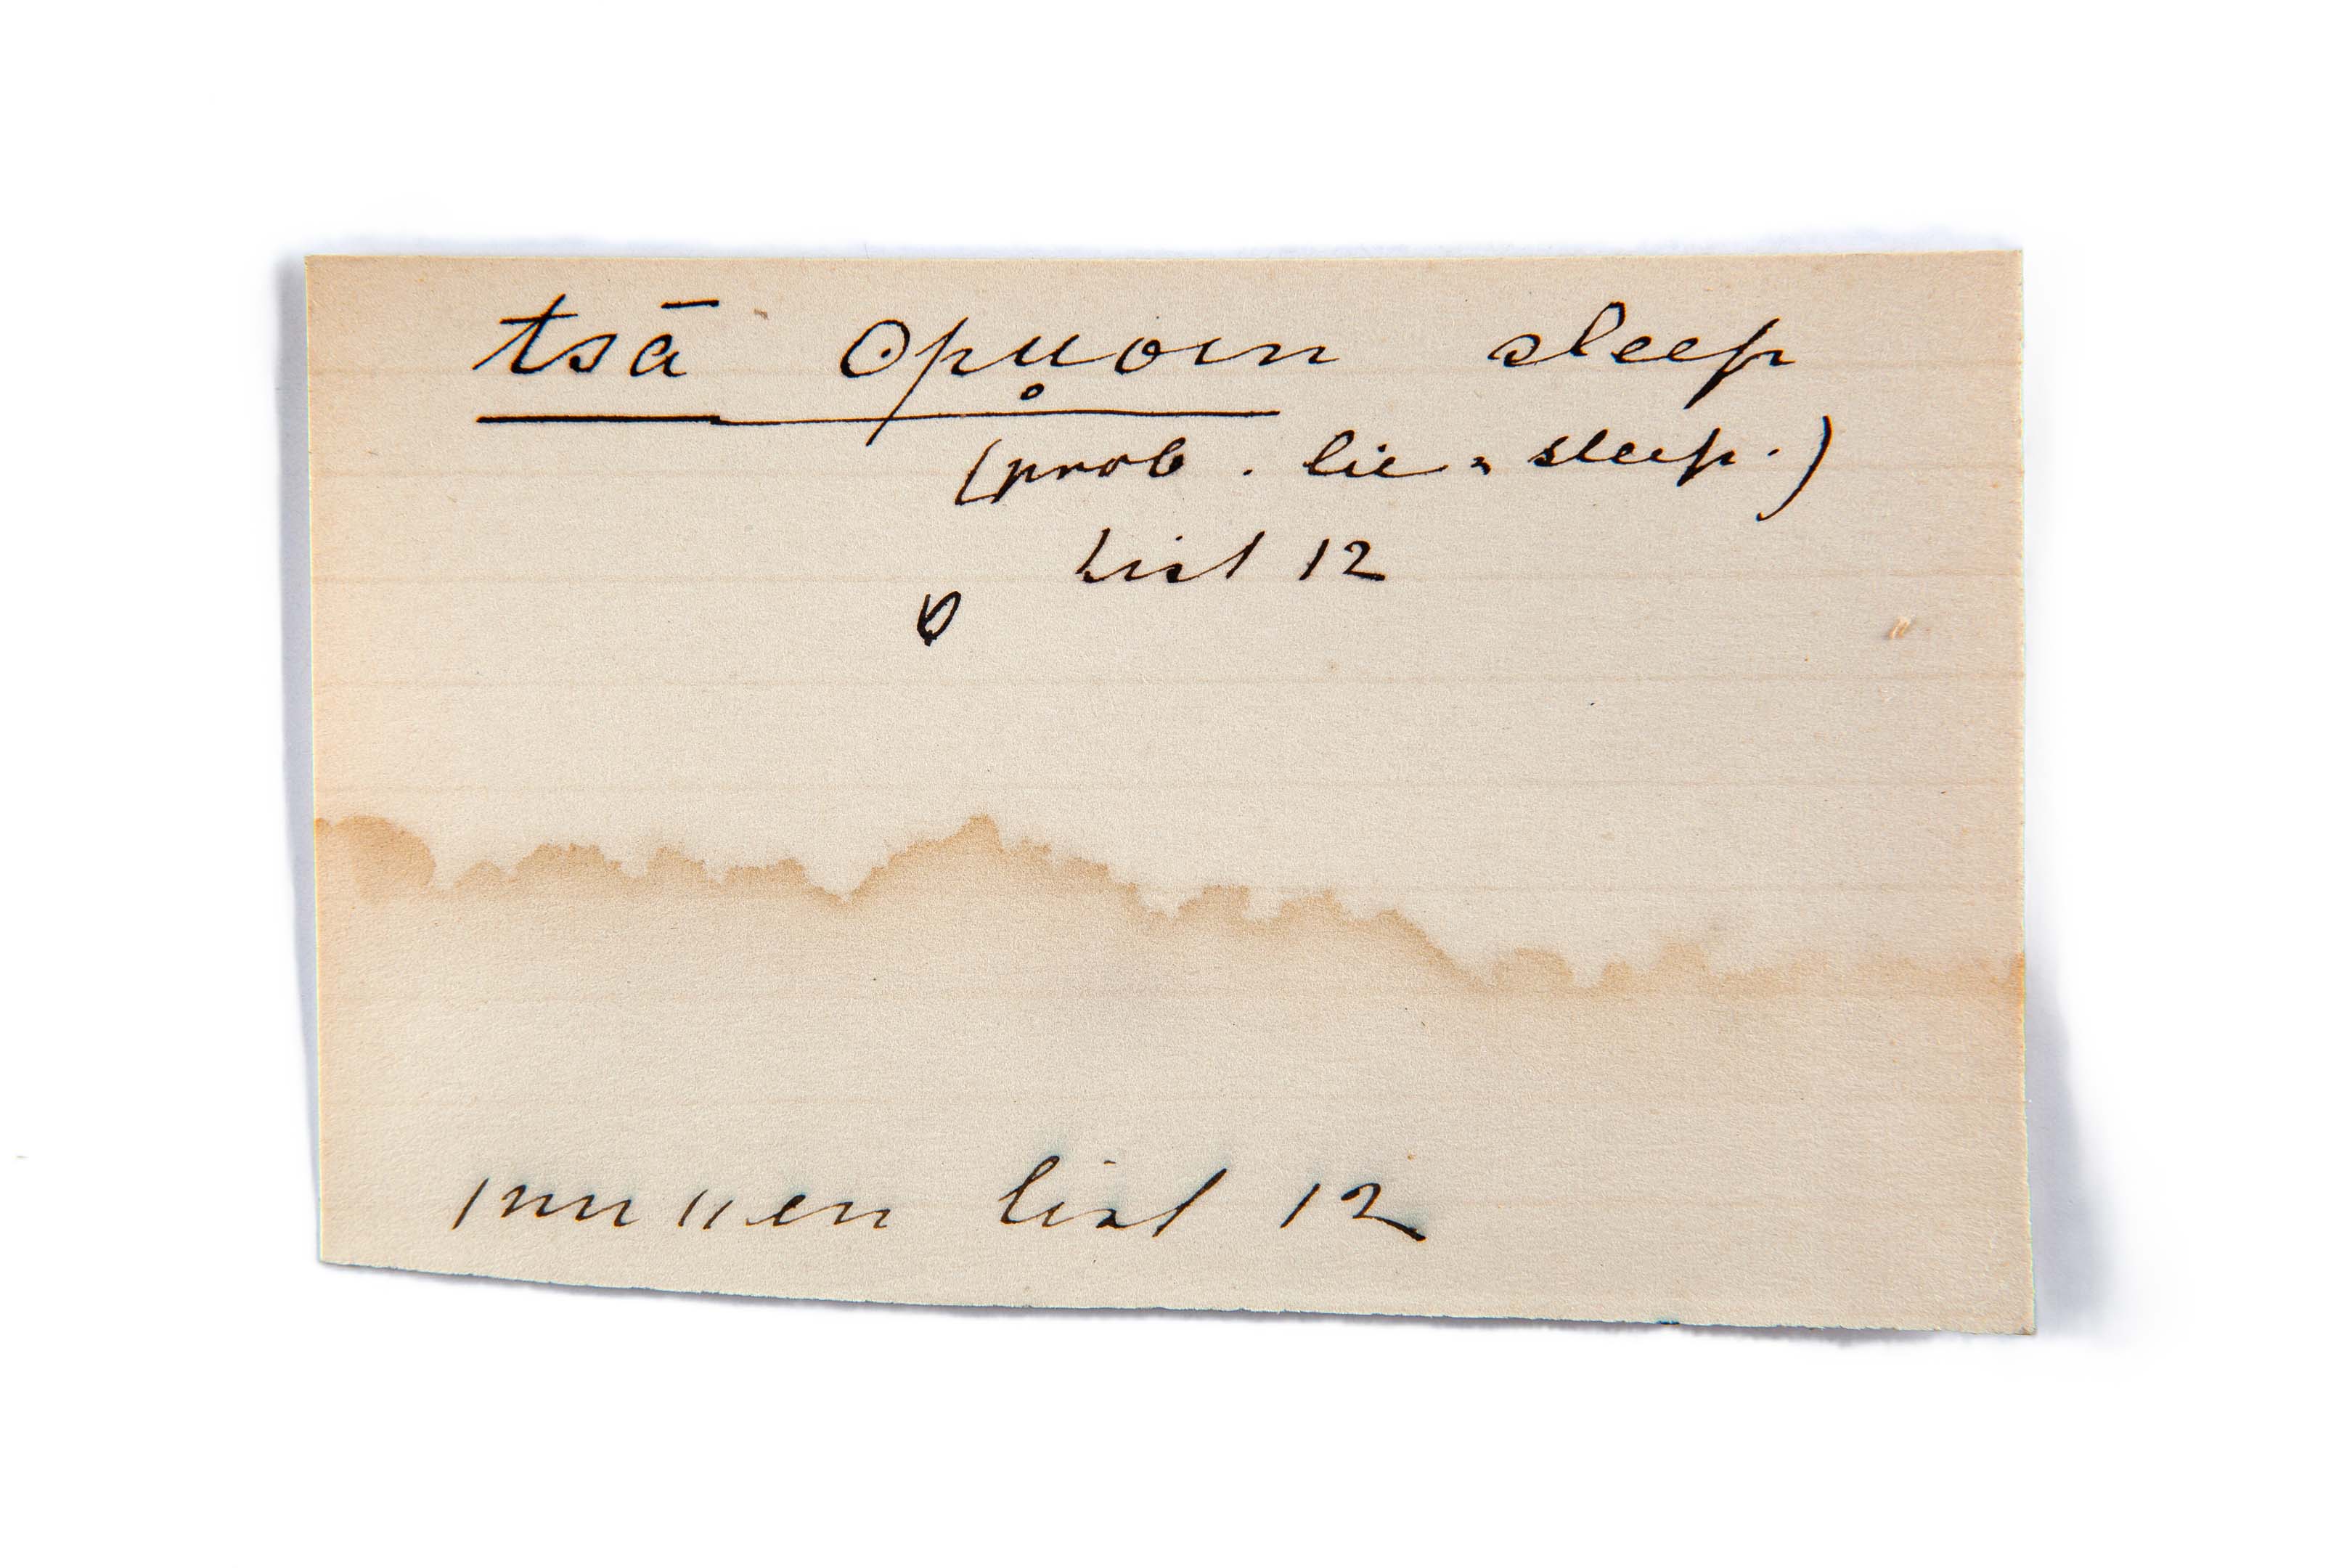 tsā opu̥oin sleep
(prob. lie = sleep.)
List 12
list 12